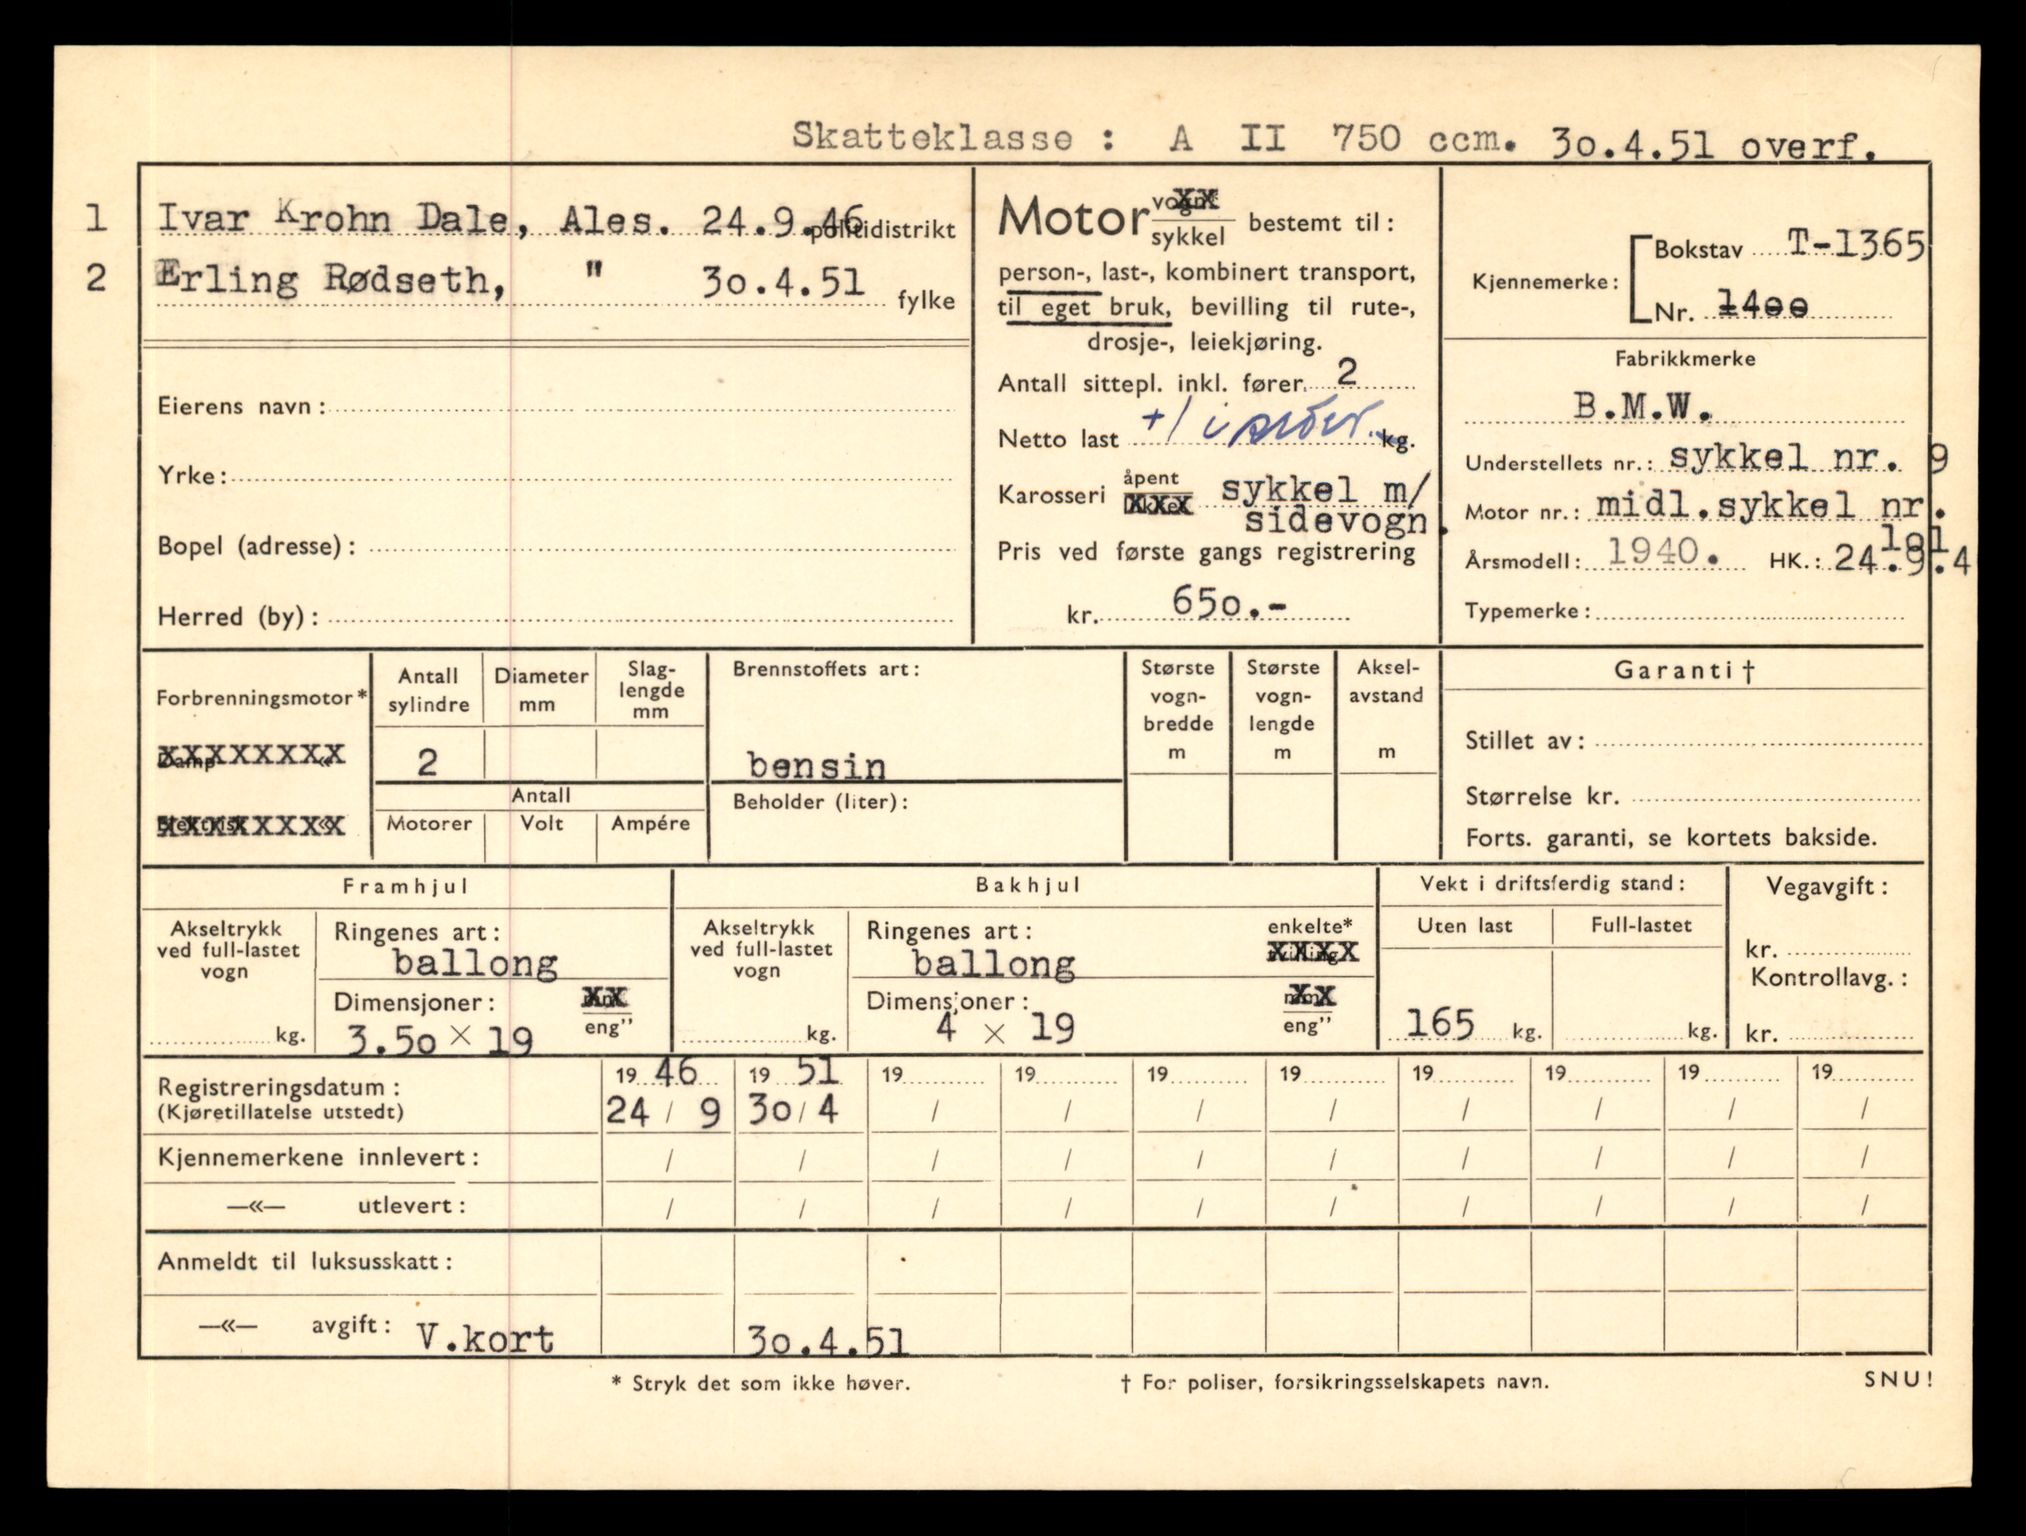 Skatteklasse : A II 750 ccm. 30.4.51 overf.
1 Ivar Krohn Dale, Ales. 24.9.46 politidistrikt
2 Erling Rødseth, " 30.4.51 fylke
Eierens navn:
Yrke:
Bopel (adresse):
Herred (by):
Motor vogn sykkel bestemt til:
person-, last-, kombinert transport,
til eget bruk, bevilling til rute-,
drosje-, leiekjøring.
Antall sittepl. inkl. fører. 2
Netto last +1 i kg.
Karosseri åpent lukket sykkel m/
sidevogn.
Pris ved første gangs registrering
kr. 650.-
Kjennemerke: Bokstav T-1365
Nr. 1400
Fabrikkmerke
B.M.W.
Understellets nr.: sykkel nr. 9
Motor nr.: midl.sykkel nr.
101
Årsmodell: 1940. HK.: 24.9.4
Typemerke:
Forbrenningsmotor*
Damp «
Elektrisk «
Antall sylindre
Diameter mm
Slag-lengde mm
2
Antall
Motorer Volt Ampére
Brennstoffets art:
bensin
Beholder (liter):
Største vogn-bredde m
Største vogn-lengde m
Aksel-avstand m
Garanti †
Stillet av:
Størrelse kr.
Forts. garanti, se kortets bakside.
Framhjul
Akseltrykk ved full-lastet vogn
kg.
Ringenes art:
ballong
Dimensjoner: mm eng"
3.50 × 19
Bakhjul
Akseltrykk ved full-lastet vogn
kg.
Ringenes art: enkelte*
ballong tvilling
Dimensjoner: mm eng"
4 × 19
Vekt i driftsferdig stand:
Uten last Full-lastet
165 kg. kg.
Vegavgift:
kr.
Kontrollavg.:
kr.
Registreringsdatum: 19 46 19 51 19 19 19 19 19 19 19 19
(Kjøretillatelse utstedt) 24 / 9 30 / 4 / / / / / / / /
Kjennemerkene innlevert: / / / / / / / / / /
—«— utlevert: / / / / / / / / / /
Anmeldt til luksusskatt:
—«— avgift: V.kort 30.4.51
* Stryk det som ikke høver. † For poliser, forsikringsselskapets navn. SNU!